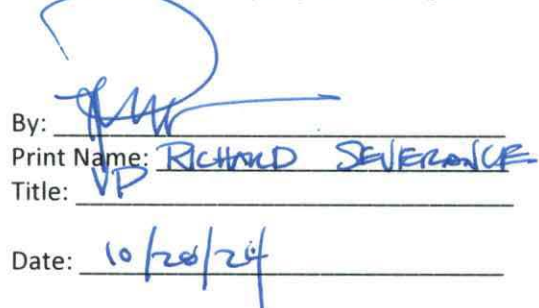 By:
Print Name: RICHARD SEVERANCE
Title: VP
Date: 10/28/24